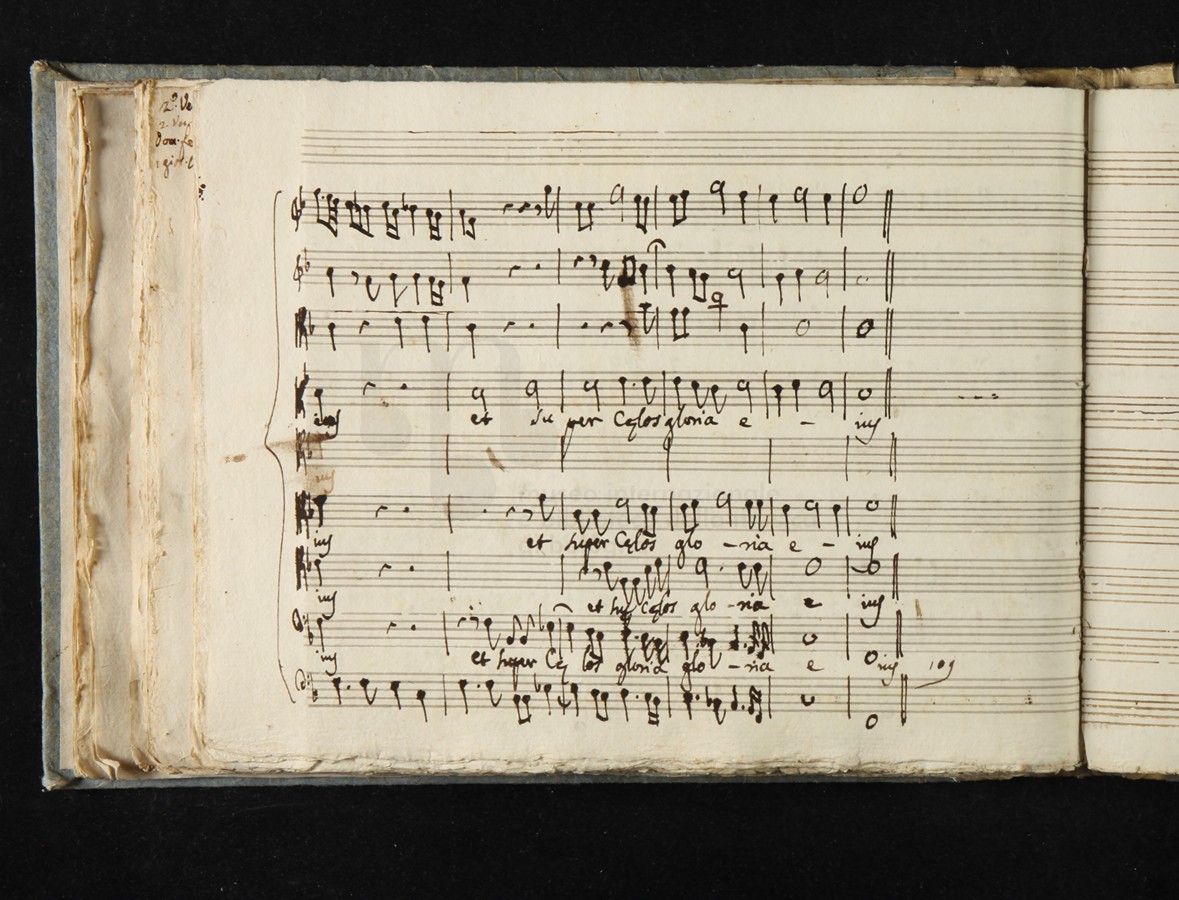 et su per Cęlos gloria e - ius
ius et super Cęlos glo - ria e - ius
ius et sup Cęlos glo - ria e ius
ius et super Cę los gloria glo - ria e ius 109